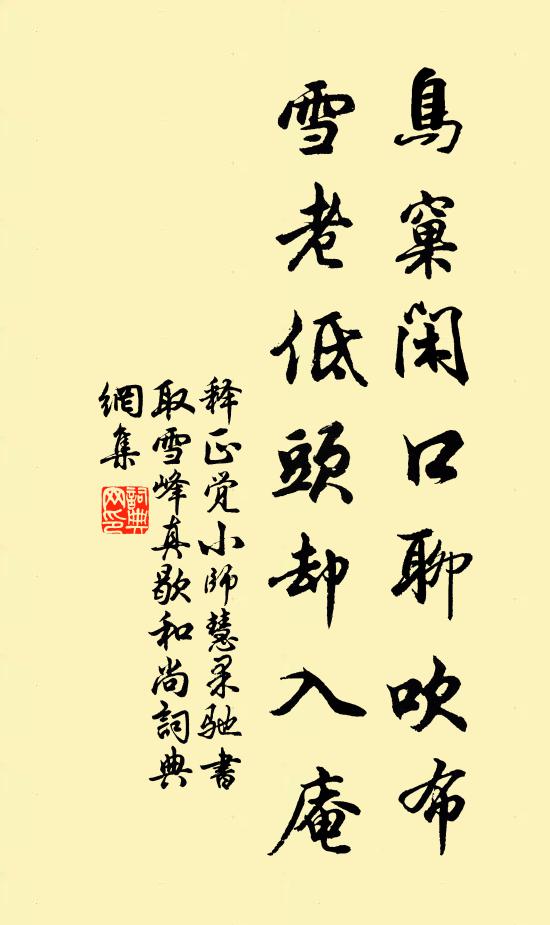 鳥窠閑口聊吹布
雪老低頭却入庵
释正觉小師慧杲馳書
取雪峰真歇和尚詞典
網集
詞典網印